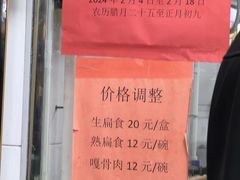 2024年2月4日至2月18日
农历腊月二十五至正月初九
价格调整
生扁食 20 元/盒
熟扁食 12 元/碗
嘎骨肉 12 元/碗